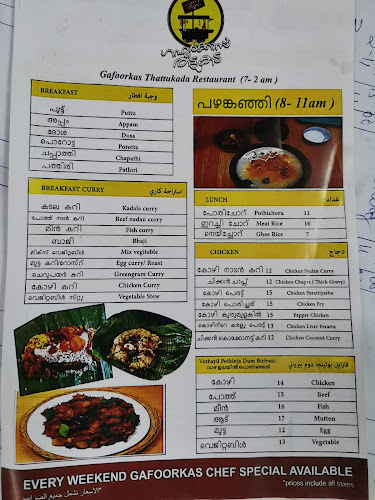 ഗഫൂർക്കാസ്
തട്ടുകട
Gafoorkas Thattukada Restaurant (7- 2 am )
BREAKFAST وجبة افطار
പുട്ട് Puttu
അപ്പം Appam
ദോശ Doss
പൊറോട്ട Porotta
ചപ്പാത്തി Chapathi
പത്തിരി Pathiri
പഴങ്കഞ്ഞി (8- 11am )
BREAKFAST CURRY
കടല കറി Kadala curry
പോത്ത് നടൻ കറി Beef nadan curry
മീൻ കറി Fish curry
ബാജി Bhaji
മിക്സ് വെജിറ്റബിൾ Mix vegitable
മുട്ട കറി/റോസ്റ്റ് Egg curry/ Roast
ചെറുപയർ കറി Greengram Curry
കോഴി കറി Chicken Curry
വെജിറ്റബിൾ സ്റ്റൂ Vegetable Stew
LUNCH غداء
പോതിച്ചോറ് Pothichoru 11
ഇറച്ചി ചോറ് Meat Rice 16
നെയ്ച്ചോറ് Ghee Rice 7
CHICKEN دجاج
കോഴി നാടൻ കറി 12 Chicken Naden Curry
ചിക്കൻ ചാപ്സ് 12 Chicken Chaps ( Thick Gravy)
കോഴി പെരട്ട് 15 Chicken Perattiyathu
കോഴി പൊരിച്ചത് 15 Chicken Fry
കോഴി കുരുമുളകിൽ 15 Pepper Chicken
കോഴിന്റെ കരളു പെരട്ട് 13 Chicken Liver Perattu
ചിക്കൻ കൊക്കോനട്ട് കറി 12 Chicken Coconut Curry
Vazhayil Pothinja Dum Biriyani
വാഴ ഇലയിൽ പൊതിഞ്ഞത്
കോഴി 14 Chicken
പോത്ത് 15 Beef
മീൻ 16 Fish
ആട് 17 Mutton
മുട്ട 12 Egg
വെജിറ്റബിൾ 13 Vegetable
EVERY WEEKEND GAFOORKAS CHEF SPECIAL AVAILABLE
*prices include all taxes
*الأسعار تشمل جميع الضرائب